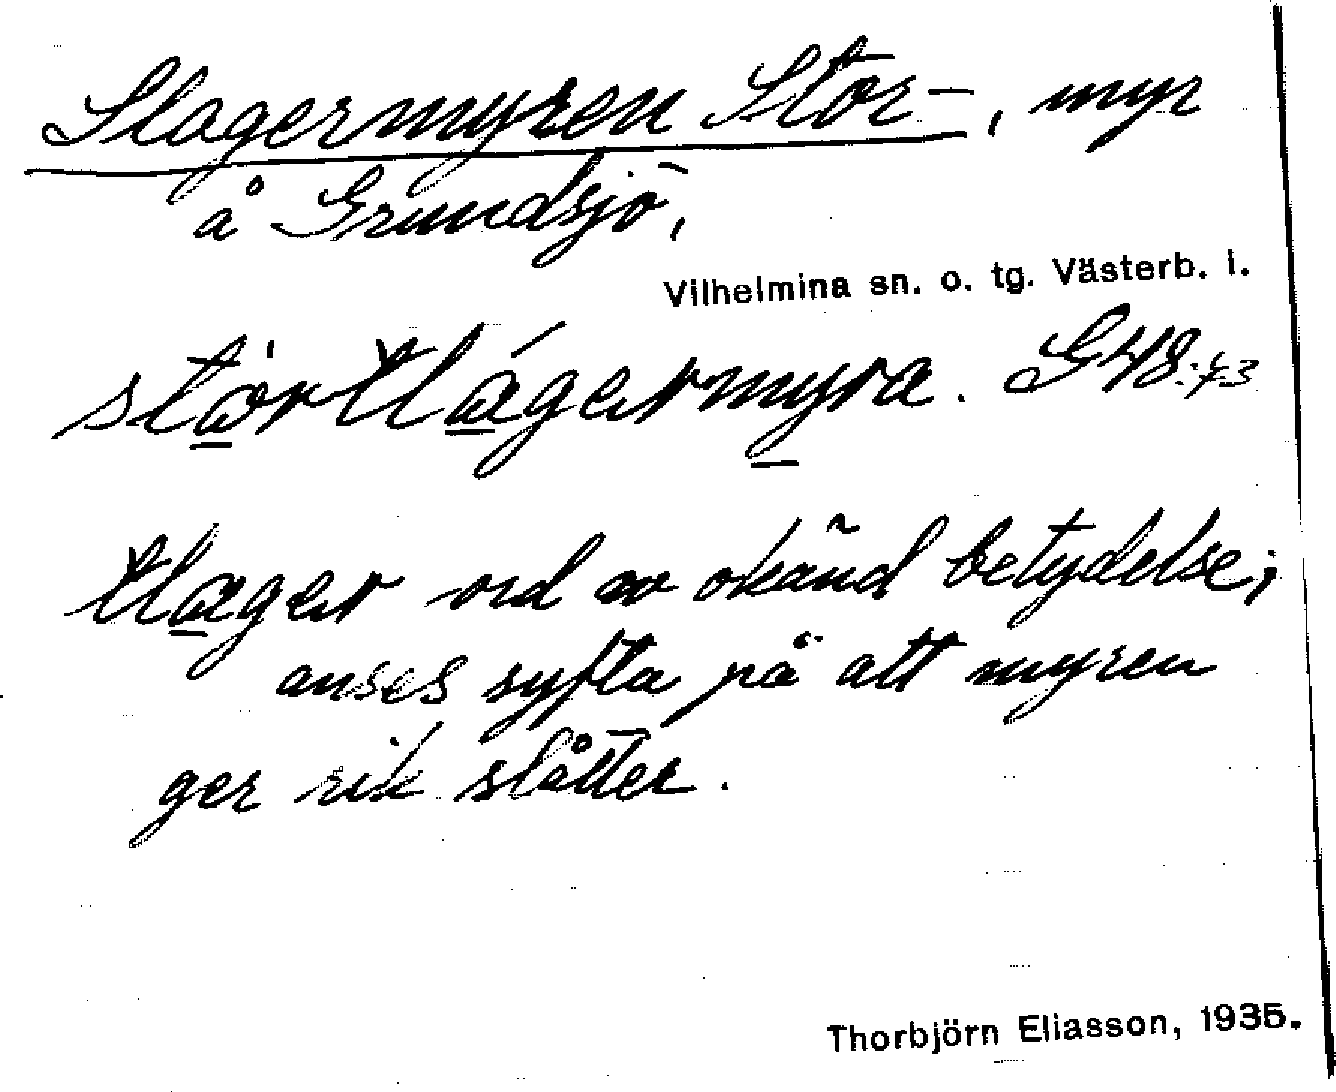 Slagermyren Stor-, myr
å Grundsjö,
Vilhelmina sn. o. tg. Västerb. l.
stòrtlágermyra. G48:43
tlager ord av okänd betydelse;
anses syfta på att myren
ger rik slåtter.
Thorbjörn Eliasson, 1935.